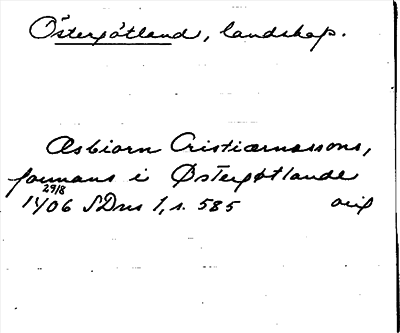 Östergötland, landskap.
Æsbiorn Cristiærnssons,
formans i Østergøtlande
29/8
1406 SDns 1, s. 585 orig